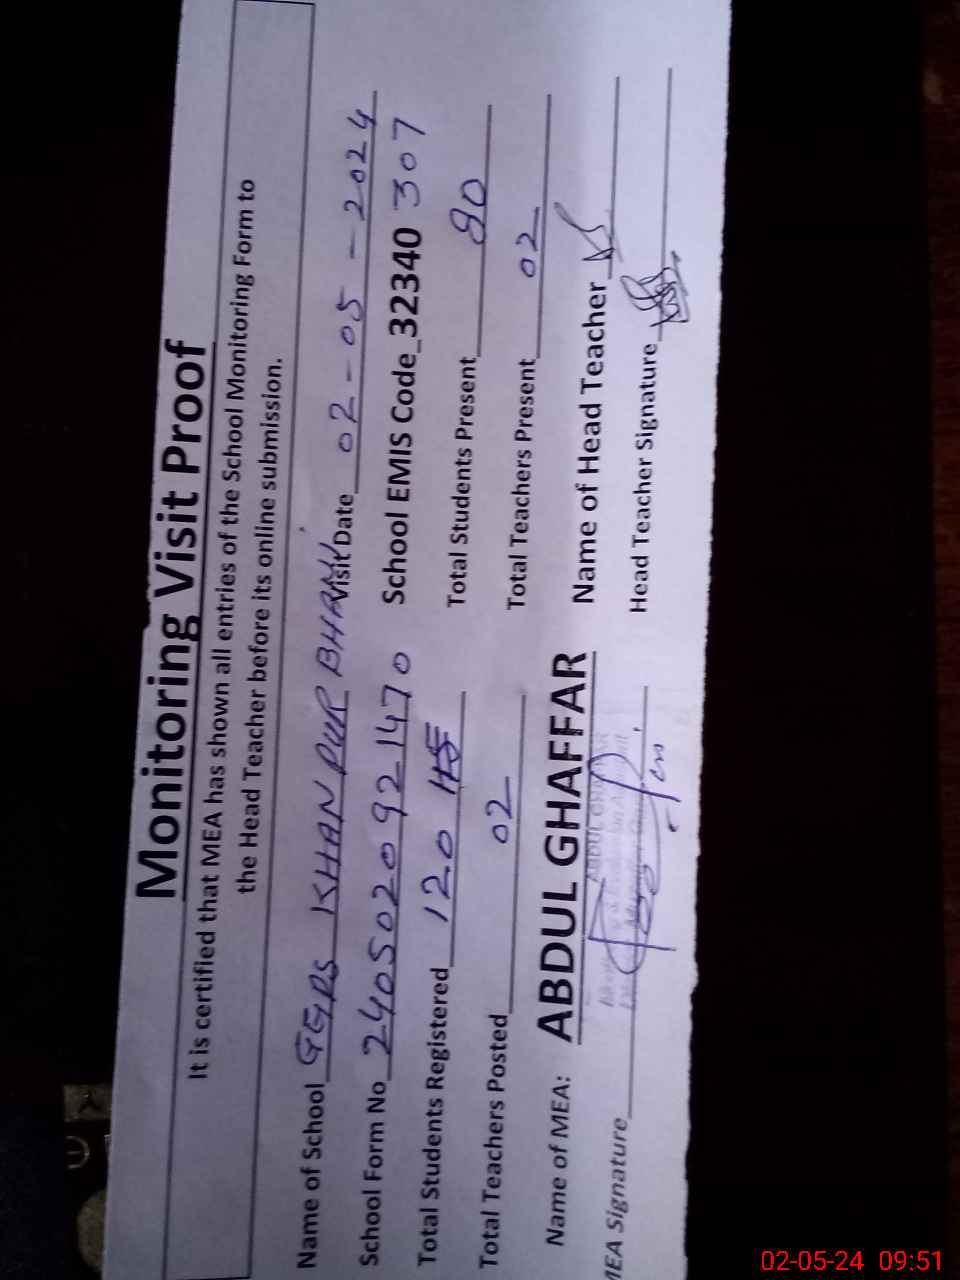 Monitoring Visit Proof
It is certified that MEA has shown all entries of the School Monitoring Form to
the Head Teacher before its online submission.
Name of School GGPS KHAN PUR BHANI Visit Date 02-05-2024
School Form No 2405020921470 School EMIS Code_32340 307
Total Students Registered 120 Total Students Present 90
Total Teachers Posted 02 Total Teachers Present 02
Name of MEA: ABDUL GHAFFAR Name of Head Teacher
MEA Signature Head Teacher Signature
ABDUL GHAFFAR
02-05-24 09:51